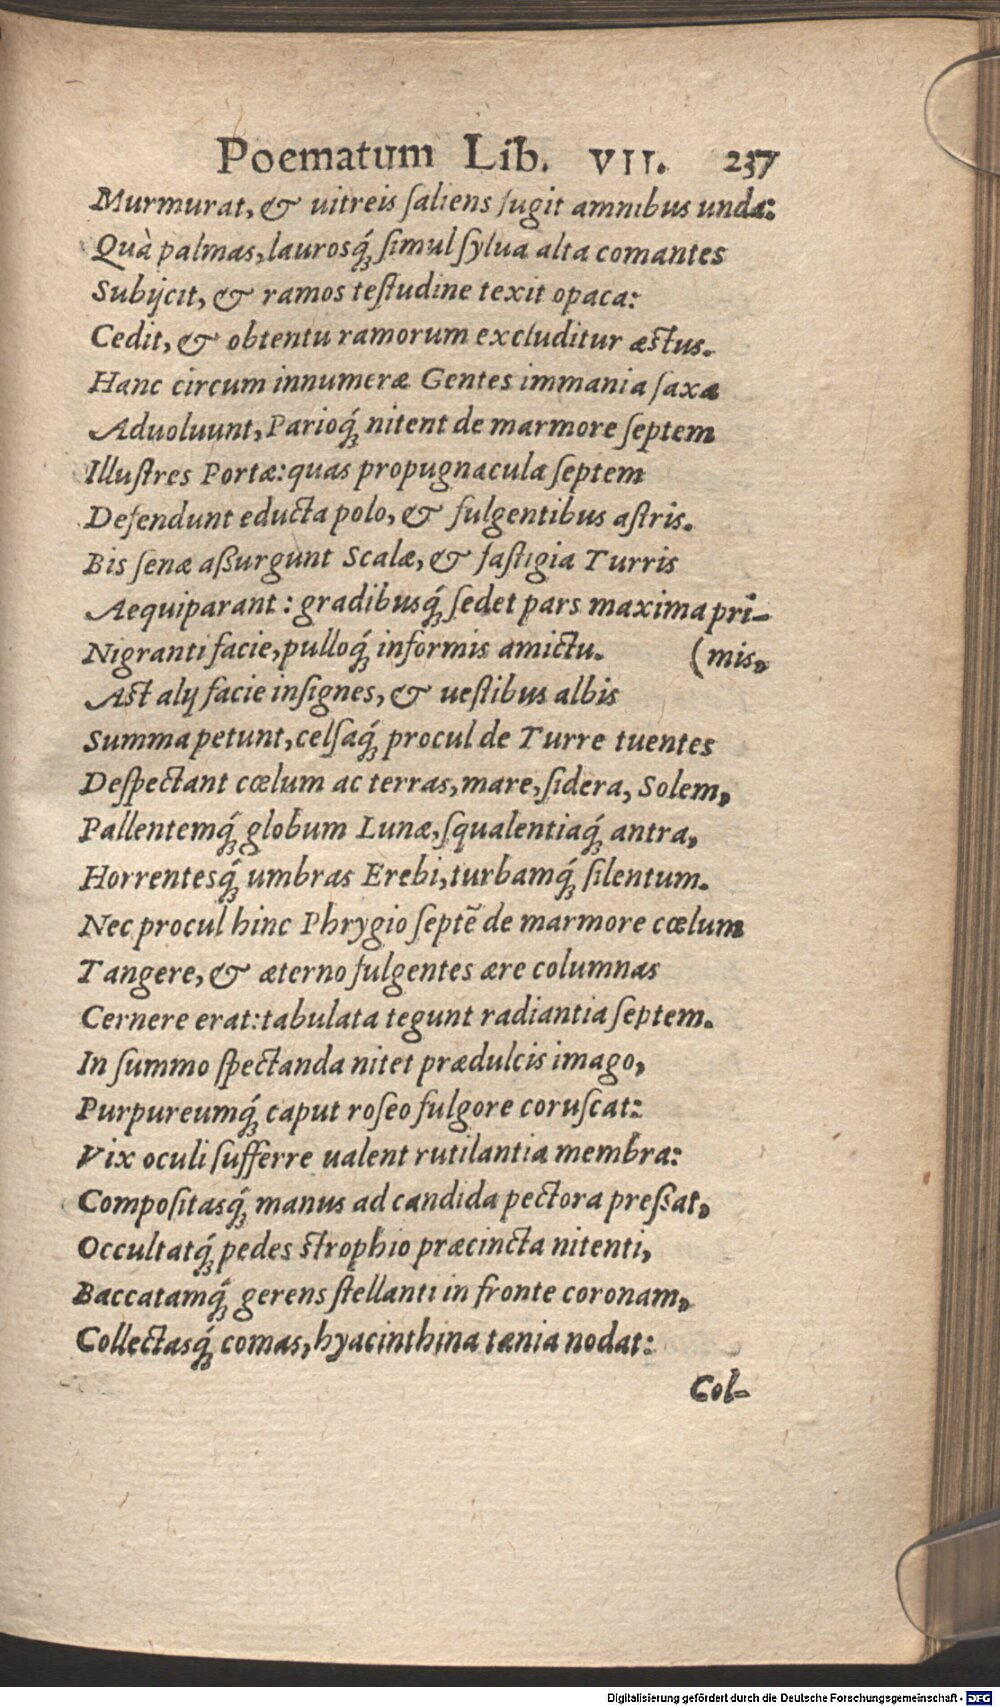 Poematum Lib. VII. 237
Murmurat, & uitreis ſaliens fugit amnibus unda:
Quà palmas, laurosq́; ſimul ſylua alta comantes
Subijcit, & ramos teſtudine texit opaca:
Cedit, & obtentu ramorum excluditur æſtus.
Hanc circum innumeræ Gentes immania ſaxa
Aduoluunt, Parioq́; nitent de marmore ſeptem
Illuſtres Portæ: quas propugnacula ſeptem
Defendunt educta polo, & fulgentibus aſtris.
Bis ſenæ aßurgunt Scalæ, & faſtigia Turris
Aequiparant: gradibusq́; ſedet pars maxima pri-
Nigranti facie, pulloq́; informis amictu. (mis,
Aſt alij facie inſignes, & ueſtibus albis
Summa petunt, celſaq́; procul de Turre tuentes
Deſpectant cœlum ac terras, mare, ſidera, Solem,
Pallentemq́; globum Lunæ, ſqualentiaq́; antra,
Horrentesq́; umbras Erebi, turbamq́; ſilentum.
Nec procul hinc Phrygio ſeptē de marmore cœlum
Tangere, & æterno fulgentes ære columnas
Cernere erat: tabulata tegunt radiantia ſeptem.
In ſummo ſpectanda nitet prædulcis imago,
Purpureumq́; caput roſeo fulgore coruſcat:
Vix oculi ſufferre ualent rutilantia membra:
Compoſitasq́; manus ad candida pectora preßat,
Occultatq́; pedes ſtrophio præcincta nitenti,
Baccatamq́; gerens ſtellanti in fronte coronam,
Collectasq́; comas, hyacinthina tænia nodat:
Col-
Digitalisierung gefördert durch die Deutsche Forschungsgemeinschaft - DFG